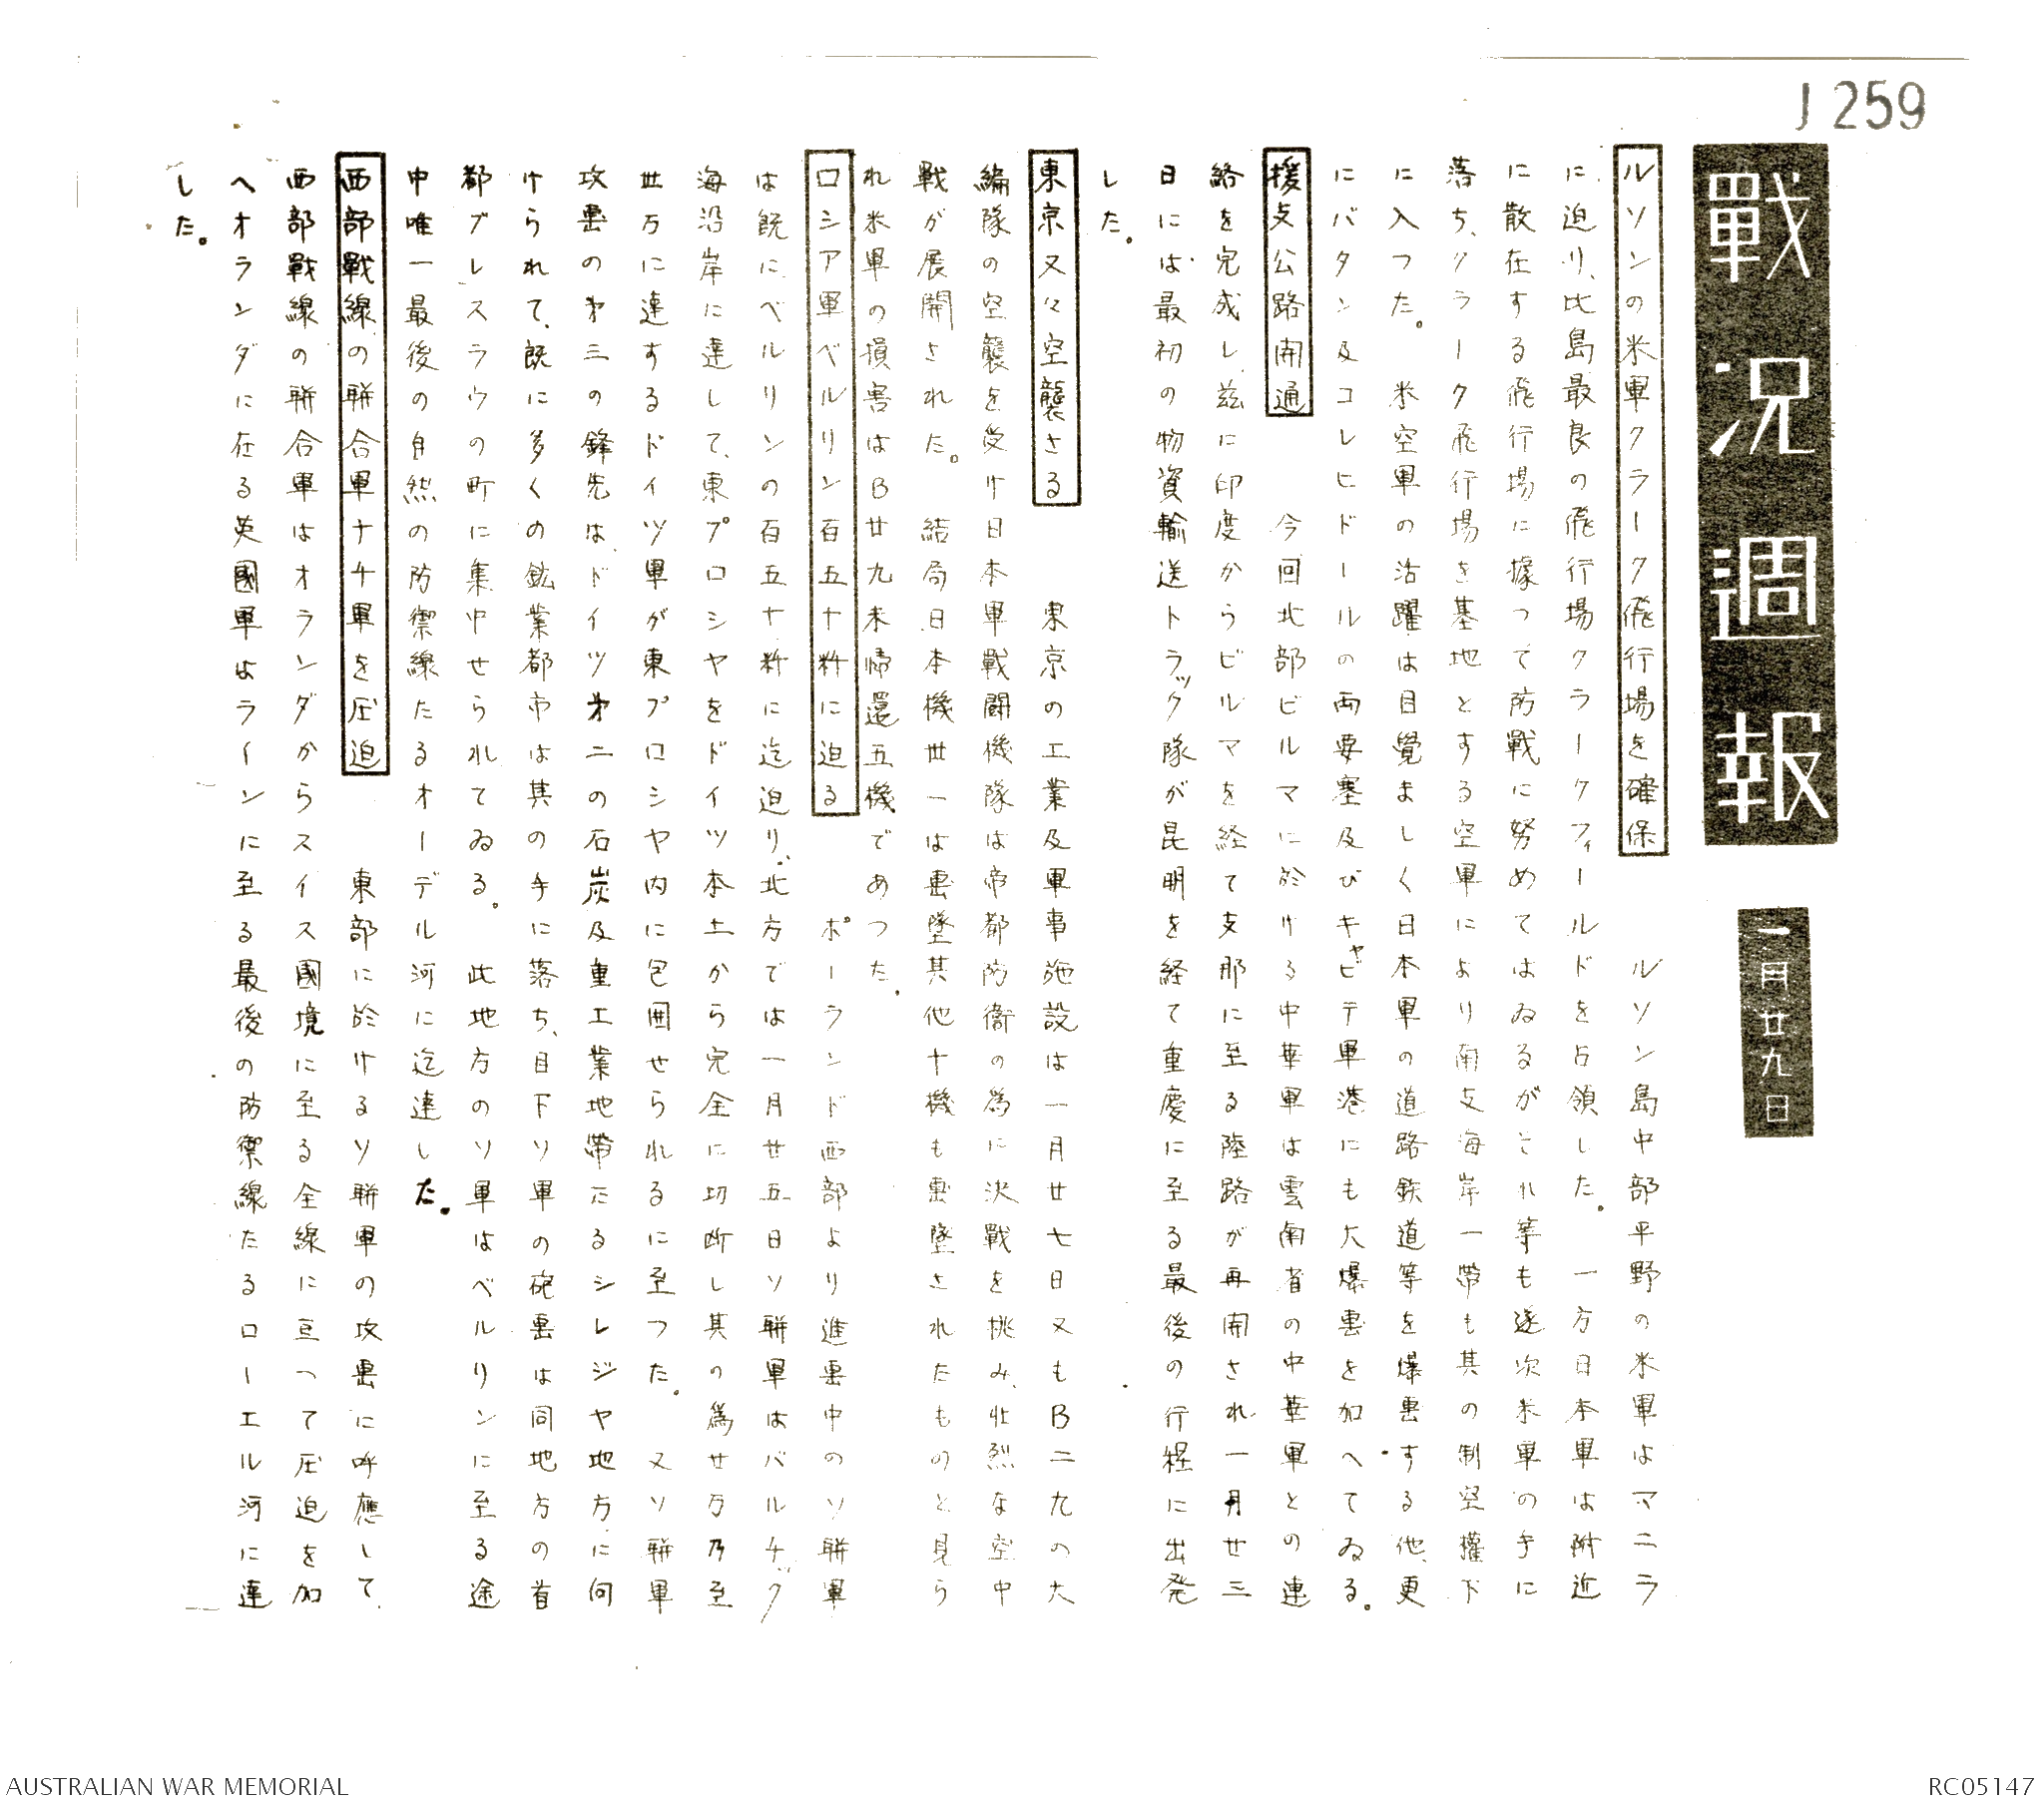 J 259
戰況週報
一月廿九日
ルソンの米軍クラーク飛行場を確保　ルソン島中部平野の米軍はマニラ
に迫り、比島最良の飛行場クラークフィールドを占領した。一方日本軍は附近
に散在する飛行場に據つて防戰に努めてはゐるがそれ等も逐次米軍の手に
落ち、クラーク飛行場を基地とする空軍により南支海岸一帶も其の制空權下
に入つた。米空軍の活躍は目覺ましく日本軍の道路鉄道等を爆撃する他、更
にバタン及コレヒドールの両要塞及びキャビテ軍港にも大爆撃を加へてゐる。
援支公路開通　今回北部ビルマに於ける中華軍は雲南省の中華軍との連
絡を完成し、茲に印度からビルマを経て支那に至る陸路が再開され一月廿三
日には最初の物資輸送トラック隊が昆明を経て重慶に至る最後の行程に出発
した。
東京又々空襲さる　東京の工業及軍事施設は一月廿七日又もB二九の大
編隊の空襲を受け日本軍戰闘機隊は帝都防衞の為に決戰を挑み、壮烈な空中
戰が展開された。結局日本機丗一は撃墜其他十機も撃墜されたものと見ら
れ米軍の損害はB廿九未帰還五機であつた。
ロシア軍ベルリン百五十粁に迫る　ポーランド西部より進撃中のソ聯軍
は既にベルリンの百五十粁に迄迫り、北方では一月廿五日ソ聯軍はバルチック
海沿岸に達して、東プロシヤをドイツ本土から完全に切断し其の為廿万乃至
丗万に達するドイツ軍が東プロシヤ内に包囲せられるに至つた。又ソ聯軍
攻撃のオ三の鋒先は、ドイツオ二の石炭及重工業地帶たるシレジヤ地方に向
けられて、既に多くの鉱業都市は其の手に落ち、目下ソ軍の砲撃は同地方の首
都ブレスラウの町に集中せられてゐる。此地方のソ軍はベルリンに至る途
中唯一最後の自然の防禦線たるオーデル河に迄達した。
西部戰線の聯合軍ナチ軍を圧迫　東部に於けるソ聯軍の攻撃に呼應して、
西部戰線の聯合軍はオランダからスイス國境に至る全線に亘つて圧迫を加
へオランダに在る英國軍はラインに至る最後の防禦線たるローエル河に達
した。
AUSTRALIAN WAR MEMORIAL
RC05147